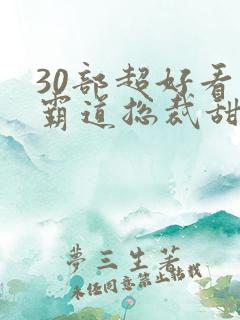 30部超好看
霸道总裁甜
夢三生著
未经同意禁止转载